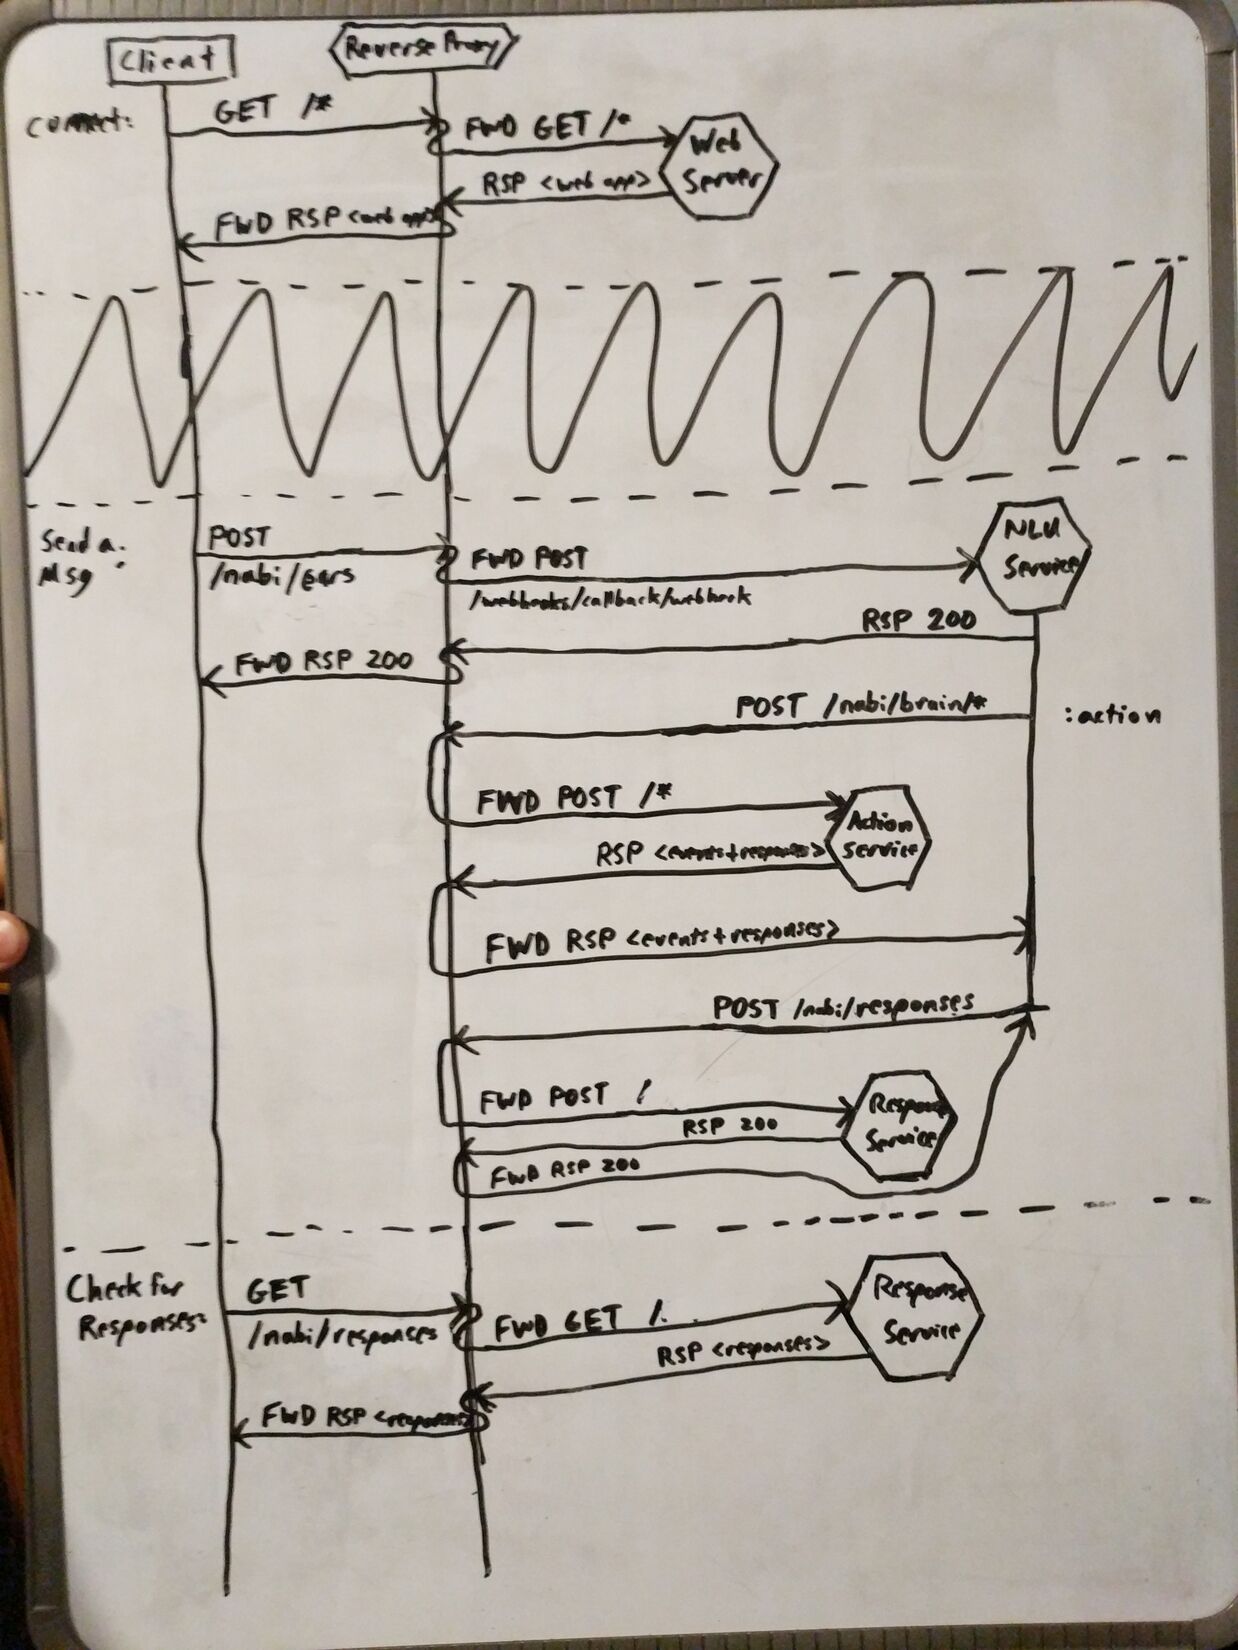 Client
Reverse Proxy
connect:
GET /*
FWD GET /*
Web
Server
RSP <web app>
FWD RSP <web app>
Send a
Msg :
POST
/nabi/ears
FWD POST
/webhooks/callback/webhook
NLU
Service
RSP 200
FWD RSP 200
POST /nabi/brain/*
:action
FWD POST /*
Action
Service
RSP <events+responses>
FWD RSP <events+responses>
POST /nabi/responses
FWD POST /
Response
Service
RSP 200
FWD RSP 200
Check for
Responses:
GET
/nabi/responses
FWD GET /
Response
Service
RSP <responses>
FWD RSP <responses>